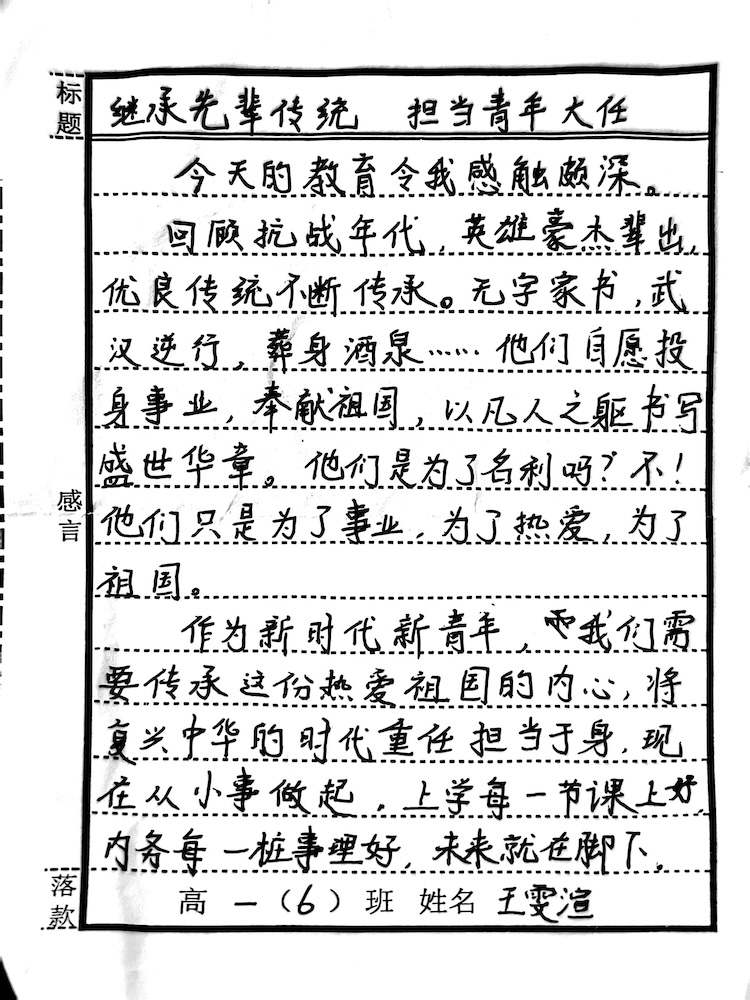 标题
继承先辈传统 担当青年大任
今天的教育令我感触颇深。
回顾抗战年代，英雄豪杰辈出，
优良传统不断传承。无字家书，武
汉逆行，葬身酒泉……他们自愿投
身事业，奉献祖国，以凡人之躯书写
盛世华章。他们是为了名利吗？不！
感言
他们只是为了事业，为了热爱，为了
祖国。
作为新时代新青年，我们需
要传承这份热爱祖国的内心，将
复兴中华的时代重任担当于身，现
在从小事做起，上学每一节课上好，
内务每一桩事理好，未来就在脚下。
落款
高一（6）班 姓名 王雯渲